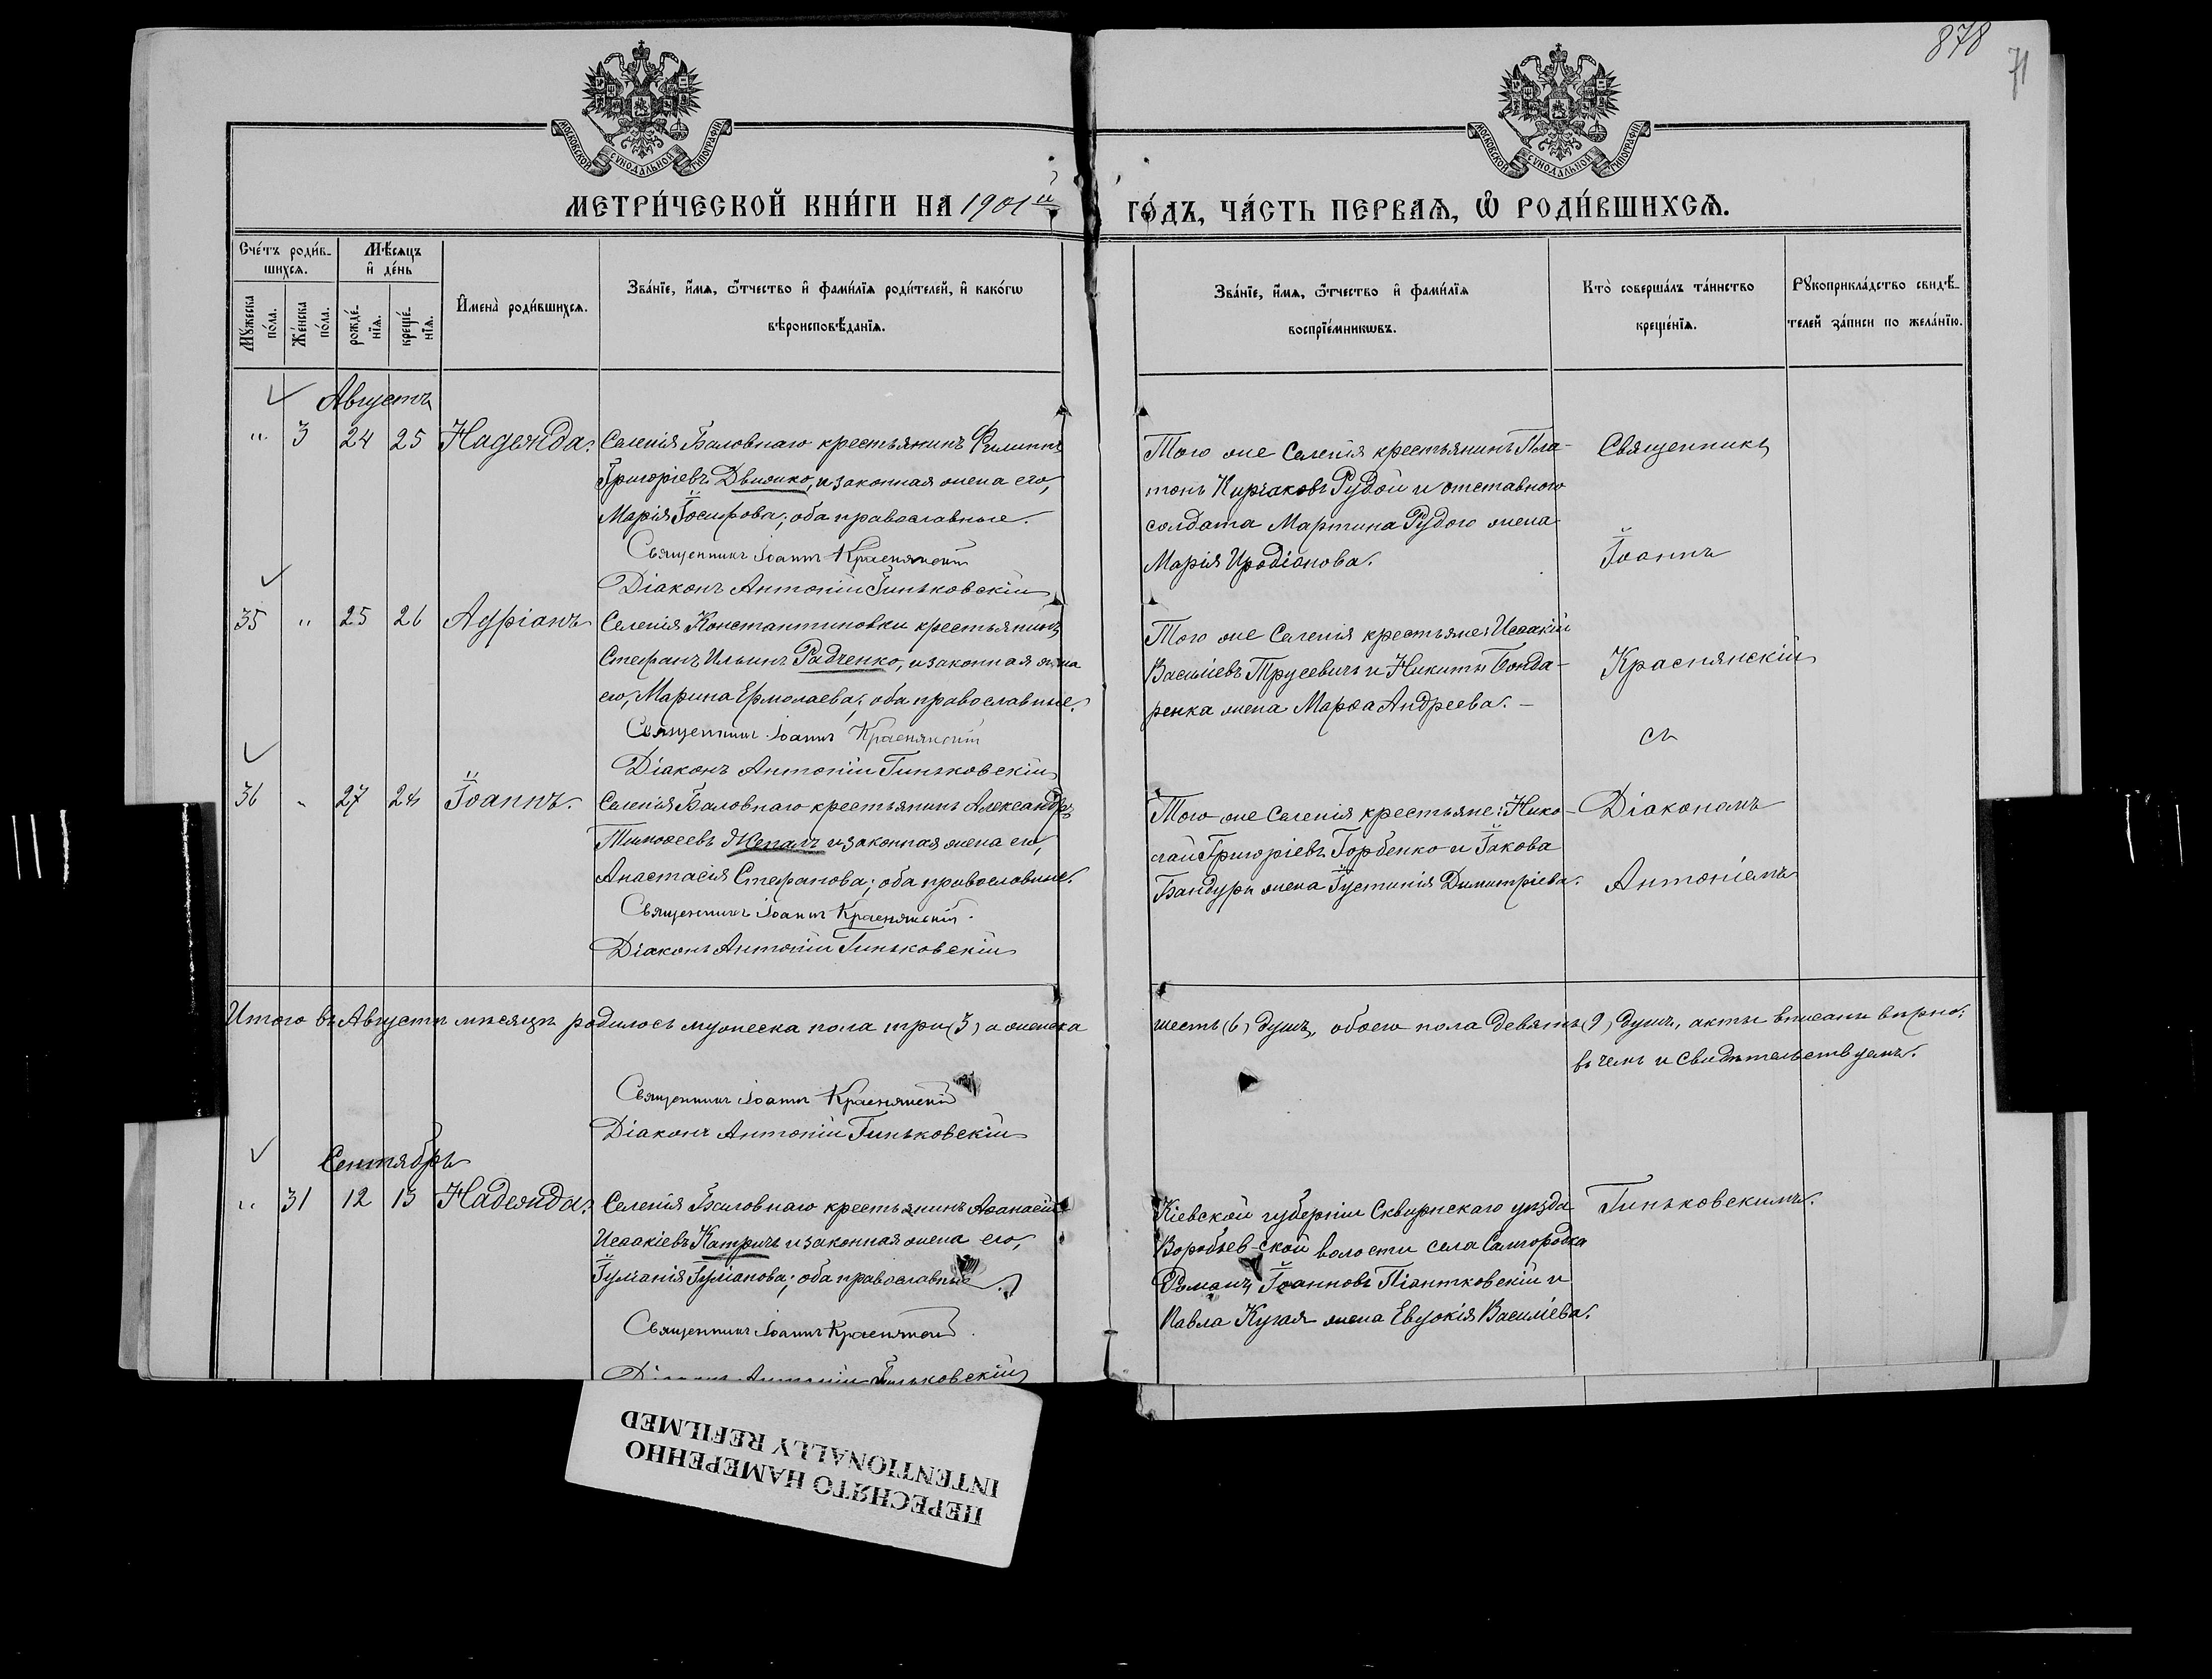 878
71
МОСКОВСКОЙ СѴНОДАЛЬНОЙ ТИПОГРАФІИ
МОСКОВСКОЙ СѴНОДАЛЬНОЙ ТИПОГРАФІИ
МЕТРИ́ЧЕСКОЙ КНИ́ГИ НА 1901й
ГО́ДЪ, ЧА́СТЬ ПЕРВАѦ, Ѽ РОДИ́ВШИХСѦ.
Сче́тъ роди́в-
шихсѧ.
Мѣ́сяцъ
и҆ де́нь
Мꙋ́жеска
по́ла.
Же́нска
по́ла.
рожде́-
нїѧ.
креще́-
нїѧ.
И҆мена̀ роди́вшихсѧ.
Зва́нїе, и҆́мѧ, ѻ҆́тчество и҆ фами́лїѧ роди́телей, и҆ како́гѡ
вѣроисповѣ́данїѧ.
Зва́нїе, и҆́мѧ, ѻ҆́тчество и҆ фами́лїѧ
воспрїе́мникѡвъ.
Кто̀ соверша́лъ та́инство
креще́нїѧ.
Рꙋкоприкла́дство свидѣ́-
телей за́писи по жела́нїю.
Августъ
" 3 24 25 Надежда. Селенія Баловнаго крестьянинъ Филиппъ
Григоріевъ Движко, и законная жена его,
Марія Іосифова; оба православные.
Священникъ Іоаннъ Краснянскій
Діаконъ Антоній Гиньковскій
Того же Селенія крестьянинъ Пла-
тонъ Рудой и отставного
солдата Мартина Рудого жена
Марія Иродіонова.
Священникъ
Іоаннъ
35 " 25 26 Адріанъ Селенія Константиновки крестьянинъ
Стефанъ Ильинъ Радченко, и законная жена
его, Марина Ермолаева; оба православные.
Священникъ Іоаннъ Краснянскій
Діаконъ Антоній Гиньковскій
Того же Селенія крестьяне: Исаакій
Василіевъ Трусевичъ и Никиты Бонда-
ренка жена Марѳа Андреева. –
Краснянскій
съ
36 " 27 28 Іоаннъ. Селенія Баловнаго крестьянинъ Александръ
Тимоѳеевъ и законная жена его,
Анастасія Стефанова; оба православные.
Священникъ Іоаннъ Краснянскій.
Діаконъ Антоній Гиньковскій
Того же Селенія крестьяне: Нико-
лай Григоріевъ Горбенко и Іакова
Бандуры жена Іустинія Димитріева.
Діакономъ
Антоніемъ
Итого въ Августѣ мѣсяцѣ родилось мужеска пола три (3) а женска
шесть (6) душъ, обоего пола девять (9) душъ, акты вписаны вѣрно.
въ чемъ и свидѣтельствуемъ.
Священникъ Іоаннъ Краснянскій
Діаконъ Антоній Гиньковскій
Сентябрь
" 31 12 13 Надежда. Селенія Баловнаго крестьянинъ Аѳанасій
Исаакіевъ Катричъ и законная жена его,
Іуліанія Іуліанова; оба православные.
Священникъ Іоаннъ Краснянскій.
Діаконъ Антоній Гиньковскій
Кіевской губерніи Сквирскаго уѣзда
ской волости села Самгородка
Романъ Іоанновъ Піантковскій и
Павла жена Евдокія Василіева.
Гиньковскимъ.
ПЕРЕСНЯТО НАМЕРЕННО
INTENTIONALLY REFILMED